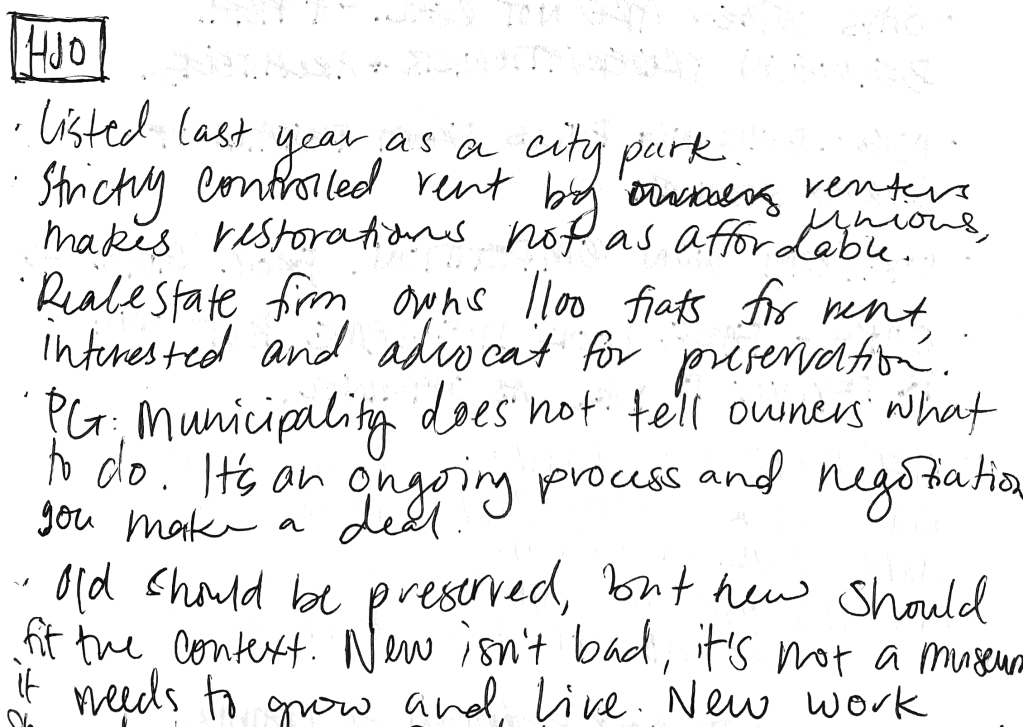 HJO
· Listed last year as a city park.
· Strictly controlled rent by owners renters
unions,
makes restorations not as affordable.
· Real estate firm owns 1100 flats for rent,
interested and advocat for preservation.
· PG: Municipality does not tell owners what
to do. It's an ongoing process and negotiation
you make a deal.
· Old should be preserved, but new should
fit the context. New isn't bad, it's not a museum
it needs to grow and live. New work